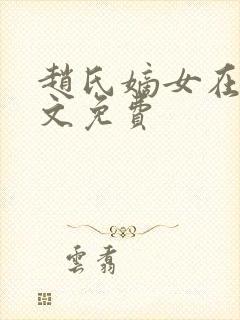 趙氏嫡女在
文免費
雲翥